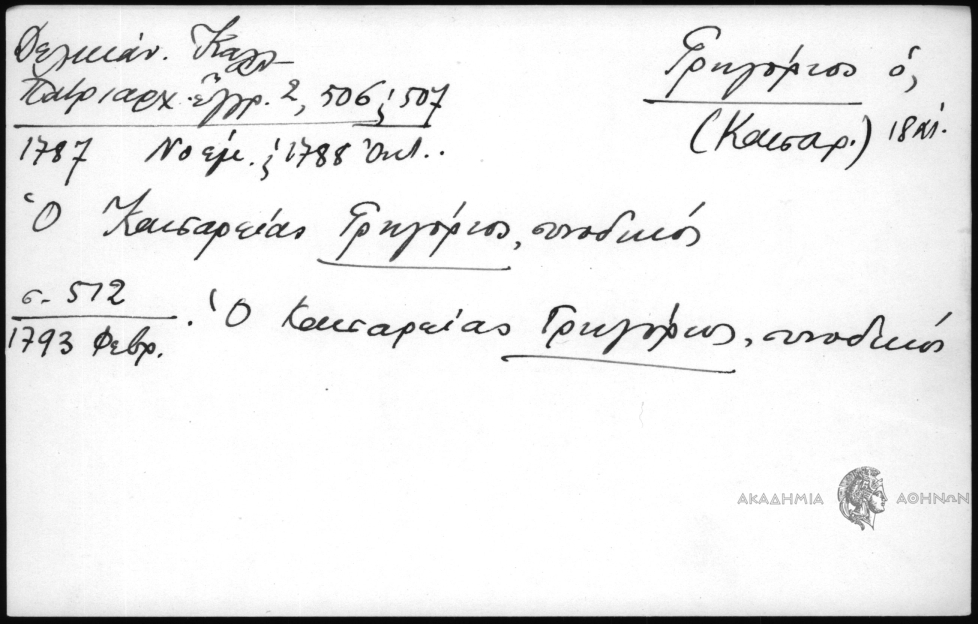 Δελικάν. Καλλ
Πατριαρχ. ἔγγρ. 2, 506 ϗ 507
1787 Νοέμ. ϗ 1788 Ὀκτ..
Γρηγόριος ὁ,
(Καισαρ.) 18 αἰ.
Ὁ Καισαρείας Γρηγόριος, συνοδικός
σ. 512
1793 Φεβρ. . Ὁ Καισαρείας Γρηγόριος, συνοδικός
ΑΚΑΔΗΜΙΑ ΑΘΗΝΩΝ